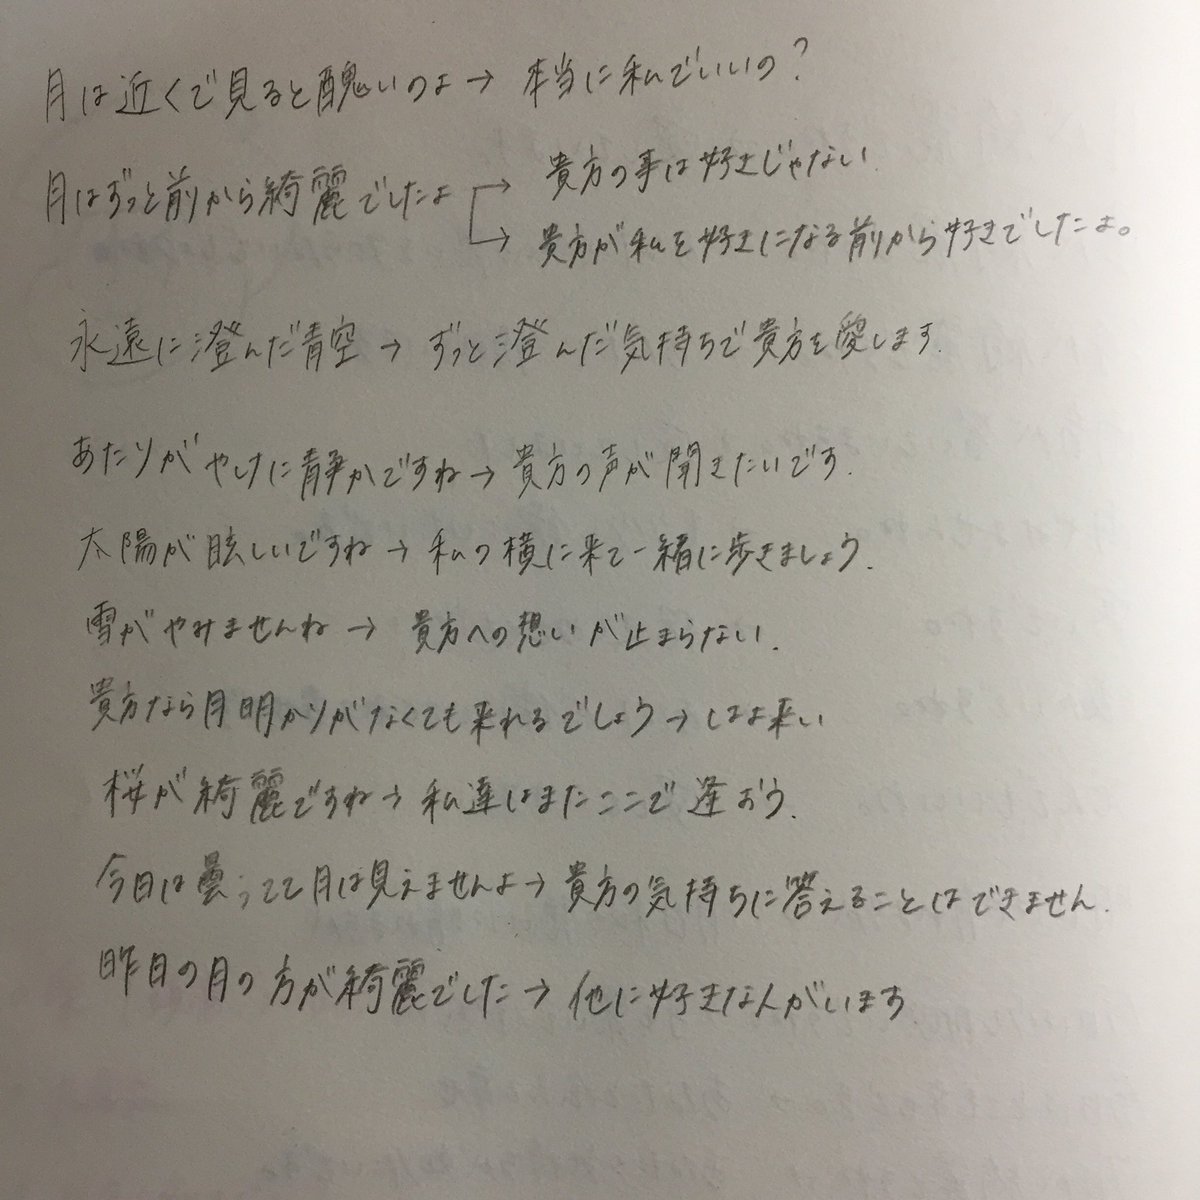 月は近くで見ると醜いのよ→ 本当に私でいいの？
月はずっと前から綺麗でしたよ → 貴方の事は好きじゃない.
→ 貴方が私を好きになる前から好きでしたよ。
永遠に澄んだ青空 → ずっと澄んだ気持ちで貴方を愛します.
あたりがやけに静かですね→貴方の声が聞きたいです.
太陽が眩しいですね→私の横に来て一緒に歩きましょう.
雪がやみませんね → 貴方への想いが止まらない.
貴方なら月明かりがなくても来れるでしょう→はよ来い
桜が綺麗ですね→私達はまたここで逢おう.
今日は曇ってて月は見えませんよ→貴方の気持ちに答えることはできません.
昨日の月の方が綺麗でした→他に好きな人がいます